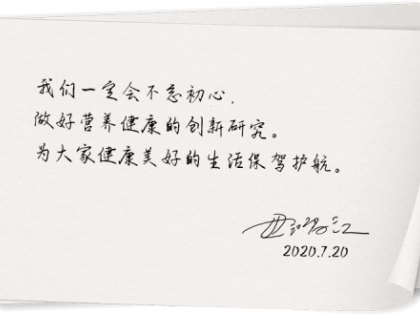 我们一定会不忘初心，
做好营养健康的创新研究。
为大家健康美好的生活保驾护航。
2020.7.20